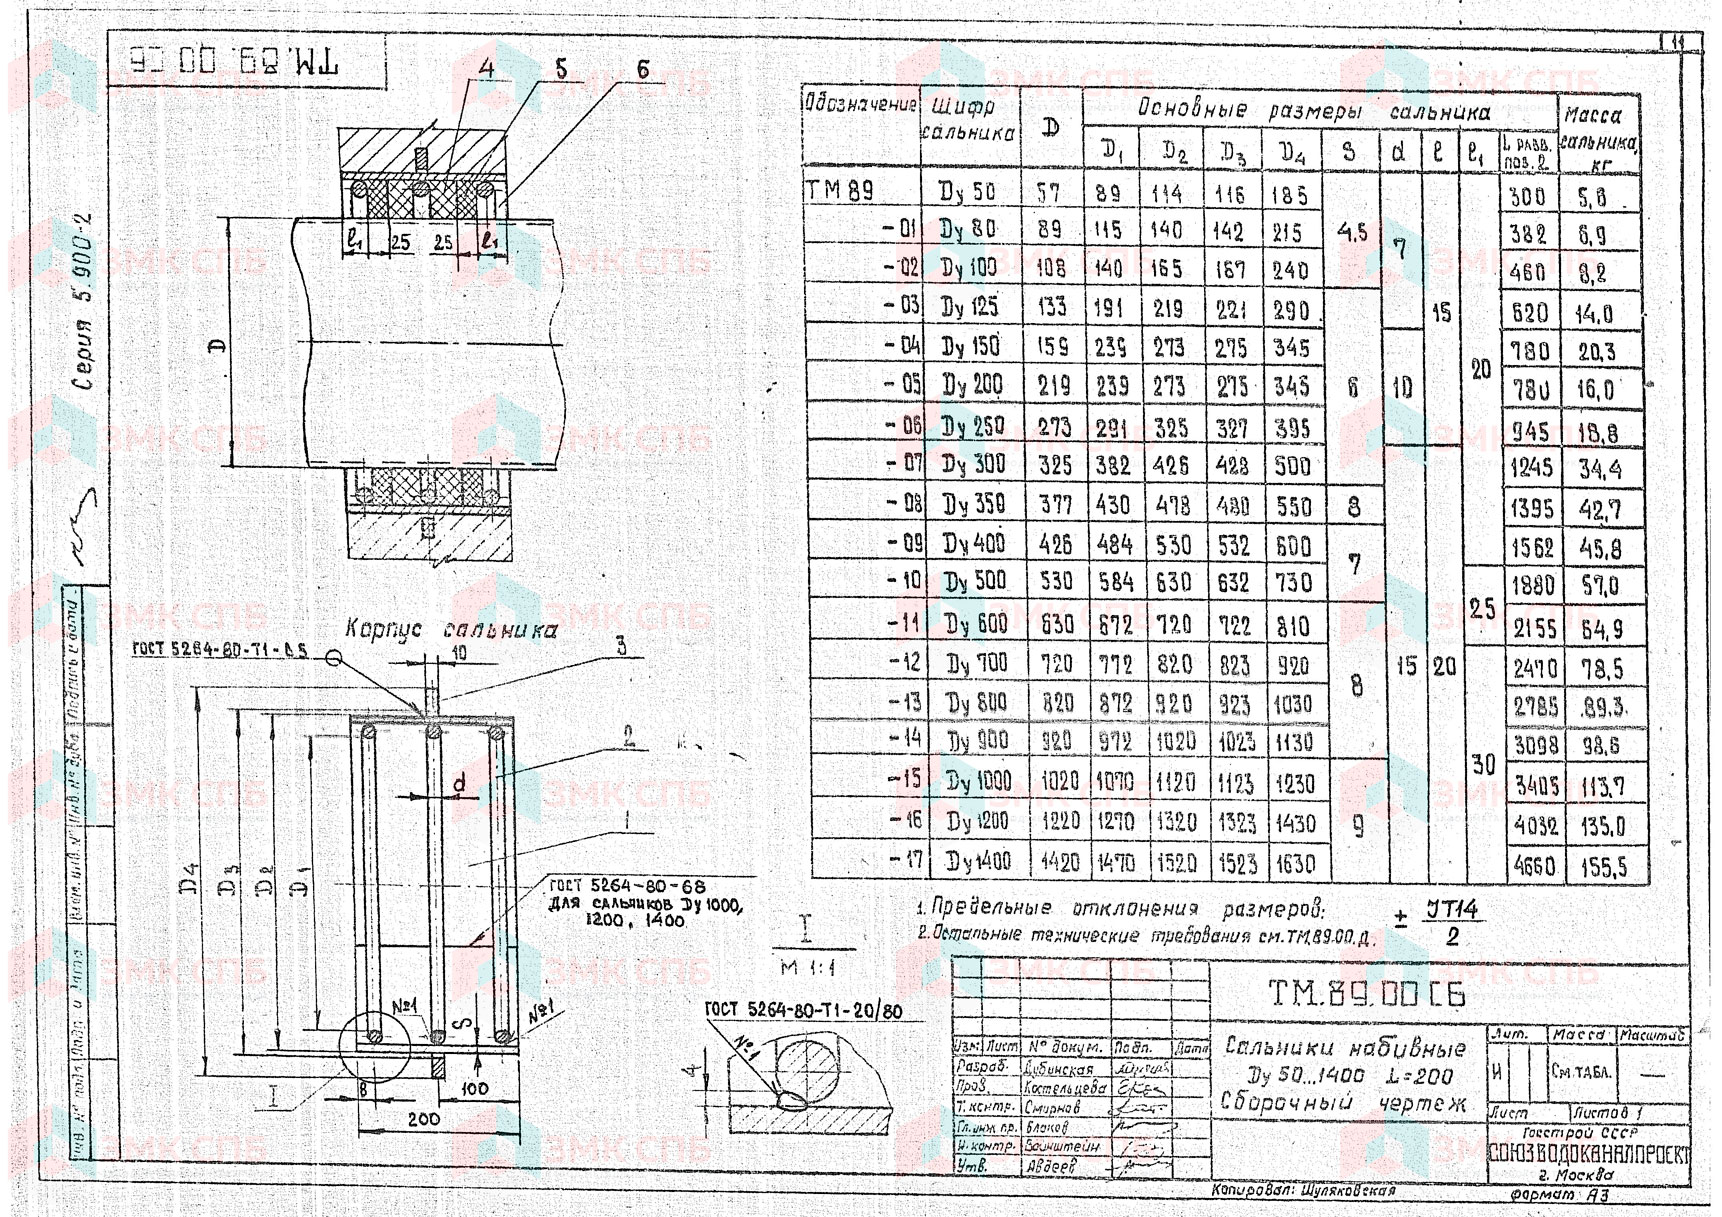 11
ТМ.89.00 СБ
Серия 5.900-2
4 5 6
ℓ1 25 25 ℓ1
D
Корпус сальника
ГОСТ 5264-80-Т1-
10
3
2
d
1
D4 D3 D2 D1
ГОСТ 5264-80-С8
ДЛЯ САЛЬНИКОВ Dy1000,
1200, 1400
№1 S №1
I
8 100
200
I
М 1:1
ГОСТ 5264-80-Т1-20/80
№1
4
Обозначение Шифр сальника D Основные размеры сальника Масса сальника, кг
D1 D2 D3 D4 S d ℓ ℓ1 L разв. поз. 2
ТМ 89 Dy 50 57 89 114 116 185 4,5 7 15 20 300 5,6
-01 Dy 80 89 115 140 142 215 382 6,9
-02 Dy 100 108 140 165 167 240 460 8,2
-03 Dy 125 133 191 219 221 290 6 620 14,0
-04 Dy 150 159 239 273 275 345 10 780 20,3
-05 Dy 200 219 239 273 275 345 780 16,0
-06 Dy 250 273 291 325 327 395 945 18,8
-07 Dy 300 325 382 426 428 500 15 20 1245 34,4
-08 Dy 350 377 430 478 480 550 8 1395 42,7
-09 Dy 400 426 484 530 532 600 7 1562 45,8
-10 Dy 500 530 584 630 632 730 25 1880 57,0
-11 Dy 600 630 672 720 722 810 8 2155 64,9
-12 Dy 700 720 772 820 823 920 30 2470 78,5
-13 Dy 800 820 872 920 923 1030 2785 89,3
-14 Dy 900 920 972 1020 1023 1130 3098 98,6
-15 Dy 1000 1020 1070 1120 1123 1230 9 3405 113,7
-16 Dy 1200 1220 1270 1320 1323 1430 4032 135,0
-17 Dy 1400 1420 1470 1520 1523 1630 4660 155,5
1. Предельные отклонения размеров: ± JT14/2
2. Остальные технические требования см. ТМ.89.00.Д.
ТМ.89.00 СБ
Изм. Лист № докум. Подп. Дата
Разраб. Дубинская
Пров. Костельцева
Т. контр. Смирнов
Гл. инж. пр. Блоков
Н. контр. Вайнштейн
Утв. Авдеев
Сальники набивные
Dy 50...1400 L=200
Сборочный чертеж
Лит. Масса Масштаб
И См. ТАБЛ. —
Лист Листов 1
Госстрой СССР
СОЮЗВОДОКАНАЛПРОЕКТ
г. Москва
Копировал: Шуляковская формат А3
Подпись и дата
Инв. № дубл.
Взам. инв. №
Подп. и дата
Инв. № подл.
ЗМК СПБ